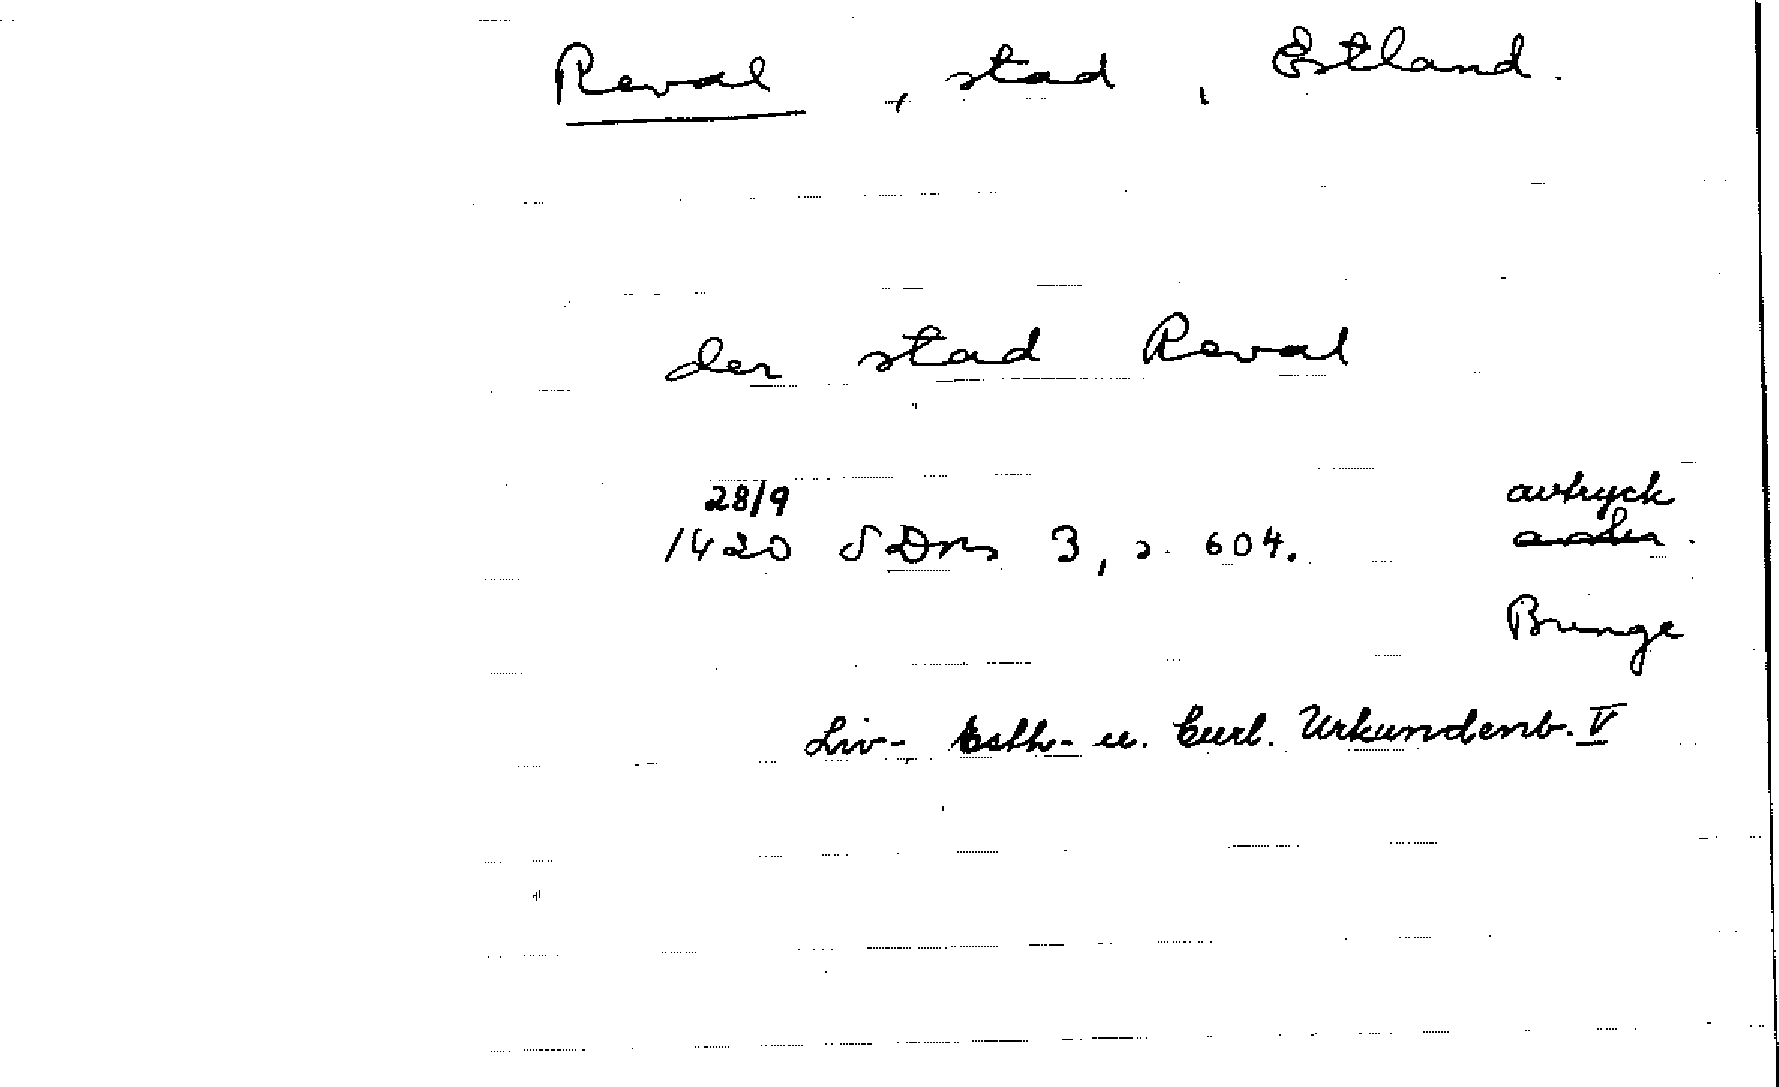 Reval, stad, Estland.
der stad Reval
28/9 avtryck
1420 SDns 3, s. 604.
Bunge
Liv- Esth- u. Curl. Urkundenb. V